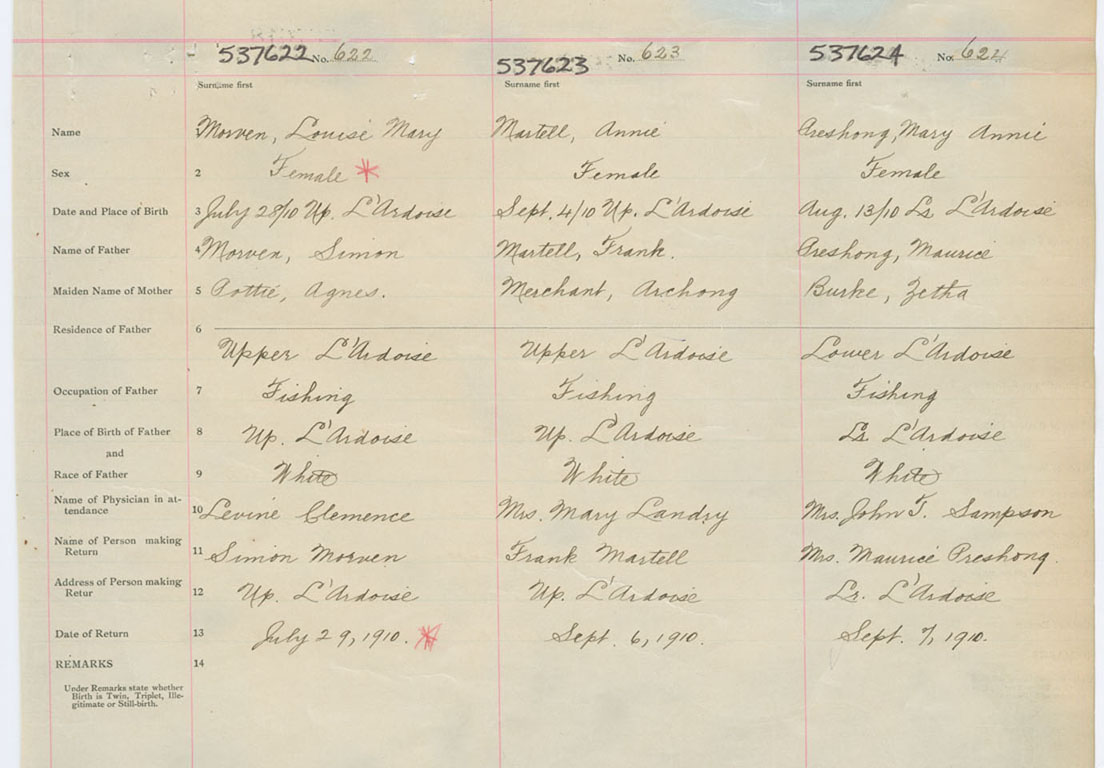 537622 No. 622 537623 No. 623 537624 No. 624
Surname first Surname first Surname first
Name Morven, Louise Mary Martell, Annie Preshong, Mary Annie
Sex 2 Female * Female Female
Date and Place of Birth 3 July 28/10 Up. L'Ardoise Sept. 4/10 Up. L'Ardoise Aug. 13/10 Lr L'Ardoise
Name of Father 4 Morven, Simon Martell, Frank. Preshong, Maurice
Maiden Name of Mother 5 Pottie, Agnes. Merchant, Archong Burke, Zetha
Residence of Father 6
Upper L'Ardoise Upper L'Ardoise Lower L'Ardoise
Occupation of Father 7 Fishing Fishing Fishing
Place of Birth of Father 8 Up. L'Ardoise Up. L'Ardoise Lr L'Ardoise
and
Race of Father 9 White White White
Name of Physician in at-
tendance 10 Levine Clemence Mrs. Mary Landry Mrs. John T. Sampson
Name of Person making
Return 11 Simon Morven Frank Martell Mrs. Maurice Preshong.
Address of Person making
Retur 12 Up. L'Ardoise Up. L'Ardoise Lr. L'Ardoise
Date of Return 13 July 29, 1910. * Sept. 6, 1910. Sept. 7, 1910.
REMARKS 14
Under Remarks state whether
Birth is Twin, Triplet, Ille-
gitimate or Still-birth.